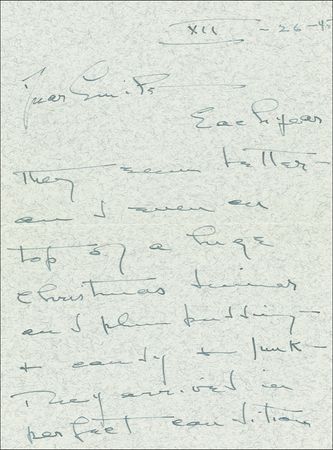 XII - 26 - 45
Dear
Each year
they seem better -
and even on
top of a huge
Christmas dinner
and plum pudding -
+ candy + junk -
They arrived in
perfect condition